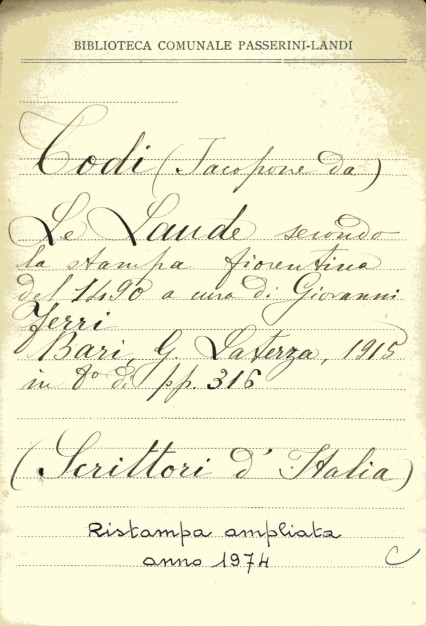 BIBLIOTECA COMUNALE PASSERINI-LANDI
Todi (Jacopone da)
Le Laude secondo
la stampa fiorentina
del 1490 a cura di Giovanni
Ferri
Bari, G. Laterza, 1915
in 8° di pp. 316
(Scrittori d' Italia)
Ristampa ampliata
anno 1974
C